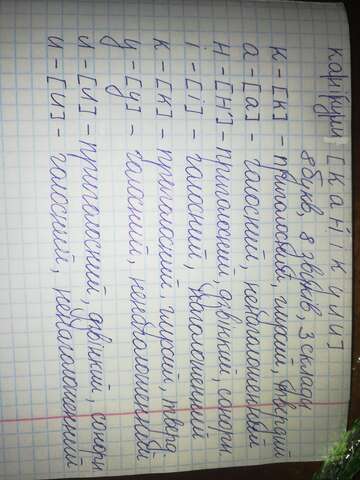 канікули [к а н' і к у л и]
8 букв, 8 звуків, 3 склади
к - [к] - приголосний, глухий, твердий
а - [а] - голосний, ненаголошений
н - [н'] - приголосний, дзвінкий, сонорн.
і - [і] - голосний, наголошений
к - [к] - приголосний, глухий, тверд
у - [у] - голосний, ненаголошений
л - [л] - приголосний, дзвінкий, сонорн
и - [и] - голосний, ненаголошений